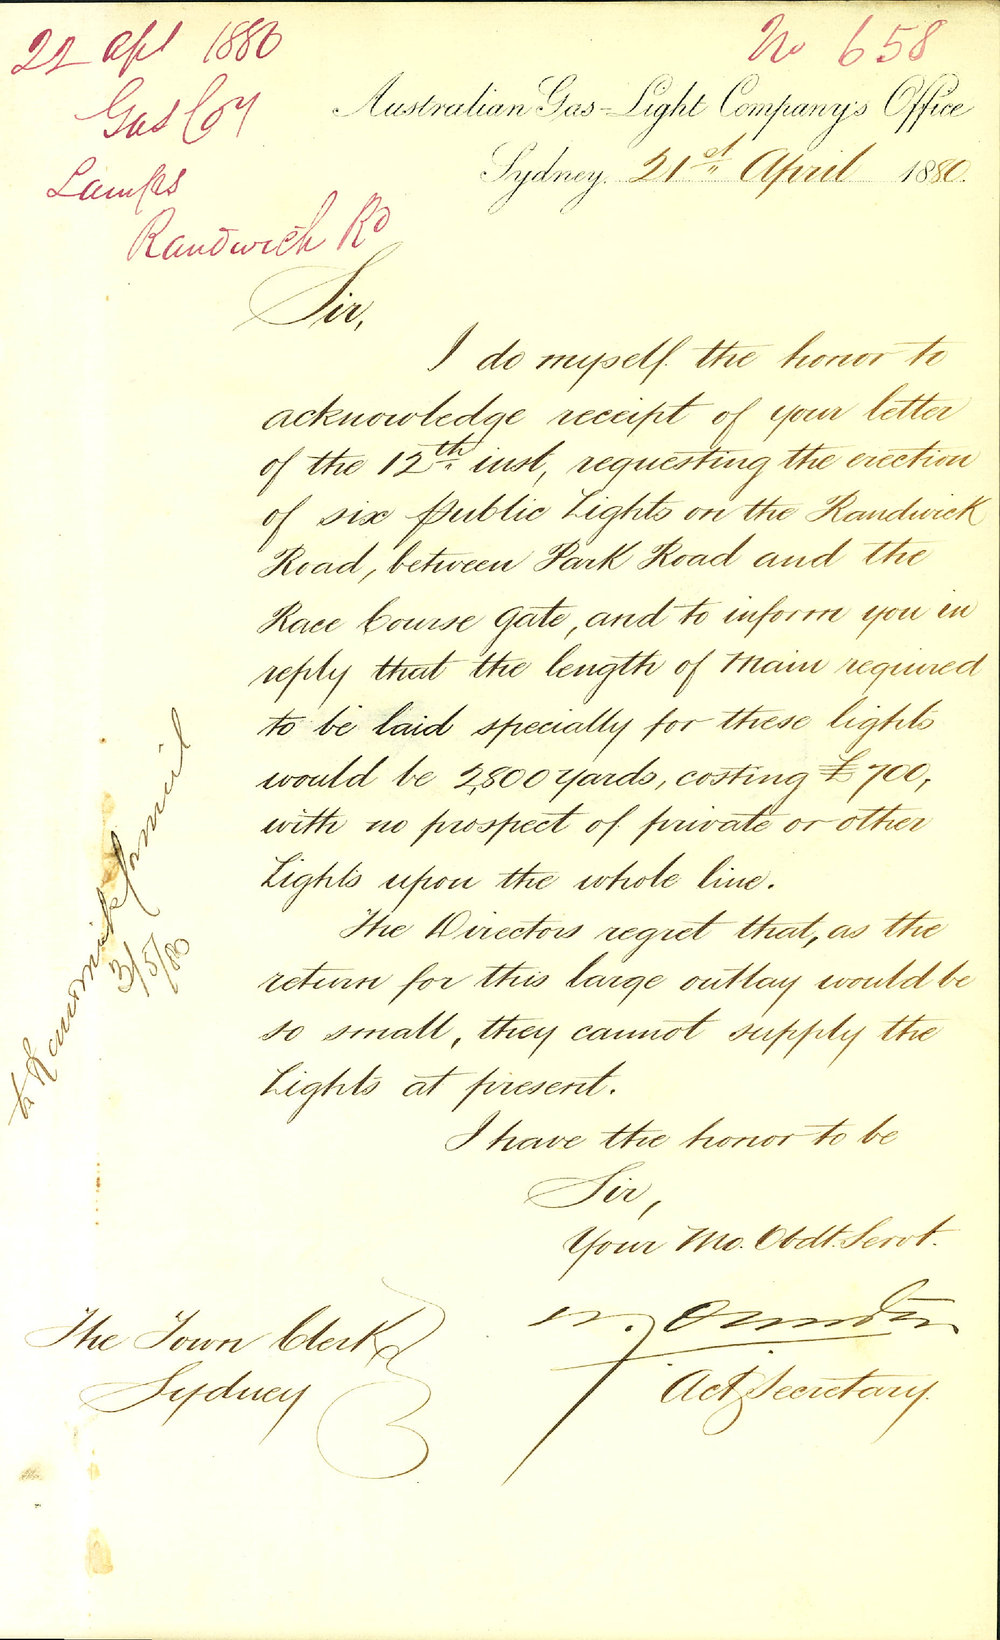 22 Apl 1880
Gas Coy
Lamps
Randwick Rd
No 658
Australian Gas-Light Company's Office
Sydney. 21st April 1880.
Sir,
I do myself the honor to
acknowledge receipt of your letter
of the 12th inst, requesting the erection
of six Public Lights on the Randwick
Road, between Park Road and the
Race Course Gate, and to inform you in
reply that the length of Main required
to be laid specially for these lights
would be 2,800 yards, costing £700,
with no prospect of private or other
Lights upon the whole line.
The Directors regret that, as the
return for this large outlay would be
so small, they cannot supply the
Lights at present.
I have the honor to be
Sir,
Your Mo. Obdt. Servt.
Act Secretary.
The Town Clerk
Sydney
to Randwick
3/5/80